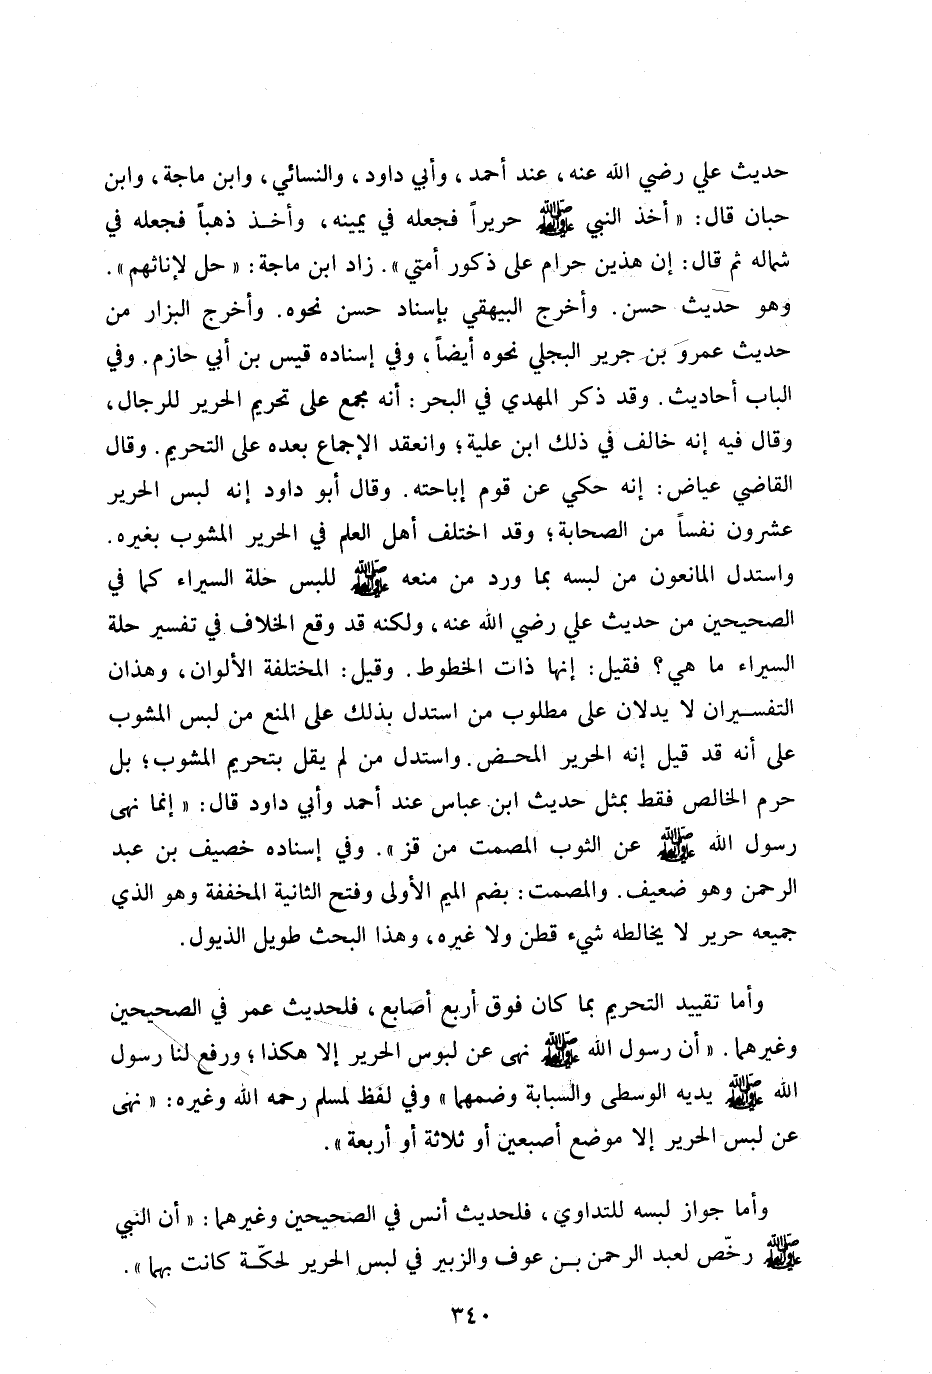 حديث علي رضي الله عنه، عند أحمد، وأبي داود، والنسائي، وابن ماجة، وابن
حبان قال: «أخذ النبي ﷺ حريراً فجعله في يمينه، وأخـذ ذهباً فجعله في
شماله ثم قال: إن هذين حرام على ذكور أمتي». زاد ابن ماجة: «حل لإناثهم».
وهو حديث حسن. وأخرج البيهقي بإسناد حسن نحوه. وأخرج البزار من
حديث عمرو بن جرير البجلي نحوه أيضاً، وفي إسناده قيس بن أبي حازم. وفي
الباب أحاديث. وقد ذكر المهدي في البحر: أنه مجمع على تحريم الحرير للرجال،
وقال فيه إنه خالف في ذلك ابن علية؛ وانعقد الإجماع بعده على التحريم. وقال
القاضي عياض: إنه حكي عن قوم إباحته. وقال أبو داود إنه لبس الحرير
عشرون نفساً من الصحابة؛ وقد اختلف أهل العلم في الحرير المشوب بغيره.
واستدل المانعون من لبسه بما ورد من منعه ﷺ للبس حلة السيراء كما في
الصحيحين من حديث علي رضي الله عنه، ولكنه قد وقع الخلاف في تفسير حلة
السيراء ما هي؟ فقيل: إنها ذات الخطوط. وقيل: المختلفة الألوان، وهذان
التفسـيران لا يدلان على مطلوب من استدل بذلك على المنع من لبس المشوب
على أنه قد قيل إنه الحرير المحـض. واستدل من لم يقل بتحريم المشوب؛ بل
حرم الخالص فقط بمثل حديث ابن عباس عند أحمد وأبي داود قال: «إنما نهى
رسول الله ﷺ عن الثوب المصمت من قز». وفي إسناده خصيف بن عبد
الرحمن وهو ضعيف. والمصمت: بضم الميم الأولى وفتح الثانية المخففة وهو الذي
جميعه حرير لا يخالطه شيء قطن ولا غيره، وهذا البحث طويل الذيول.
وأما تقييد التحريم بما كان فوق أربع أصابع، فلحديث عمر في الصحيحين
وغيرهما. «أن رسول الله ﷺ نهى عن لبوس الحرير إلا هكذا؛ ورفع لنا رسول
الله ﷺ يديه الوسطى والسبابة وضمهما» وفي لفظ لمسلم رحمه الله وغيره: «نهى
عن لبس الحرير إلا موضع أصبعين أو ثلاثة أو أربعة».
وأما جواز لبسه للتداوي، فلحديث أنس في الصحيحين وغيرهما: «أن النبي
ﷺ رخّص لعبد الرحمن بـن عوف والزبير في لبس الحرير لحكّـة كانت بهما».
٣٤٠